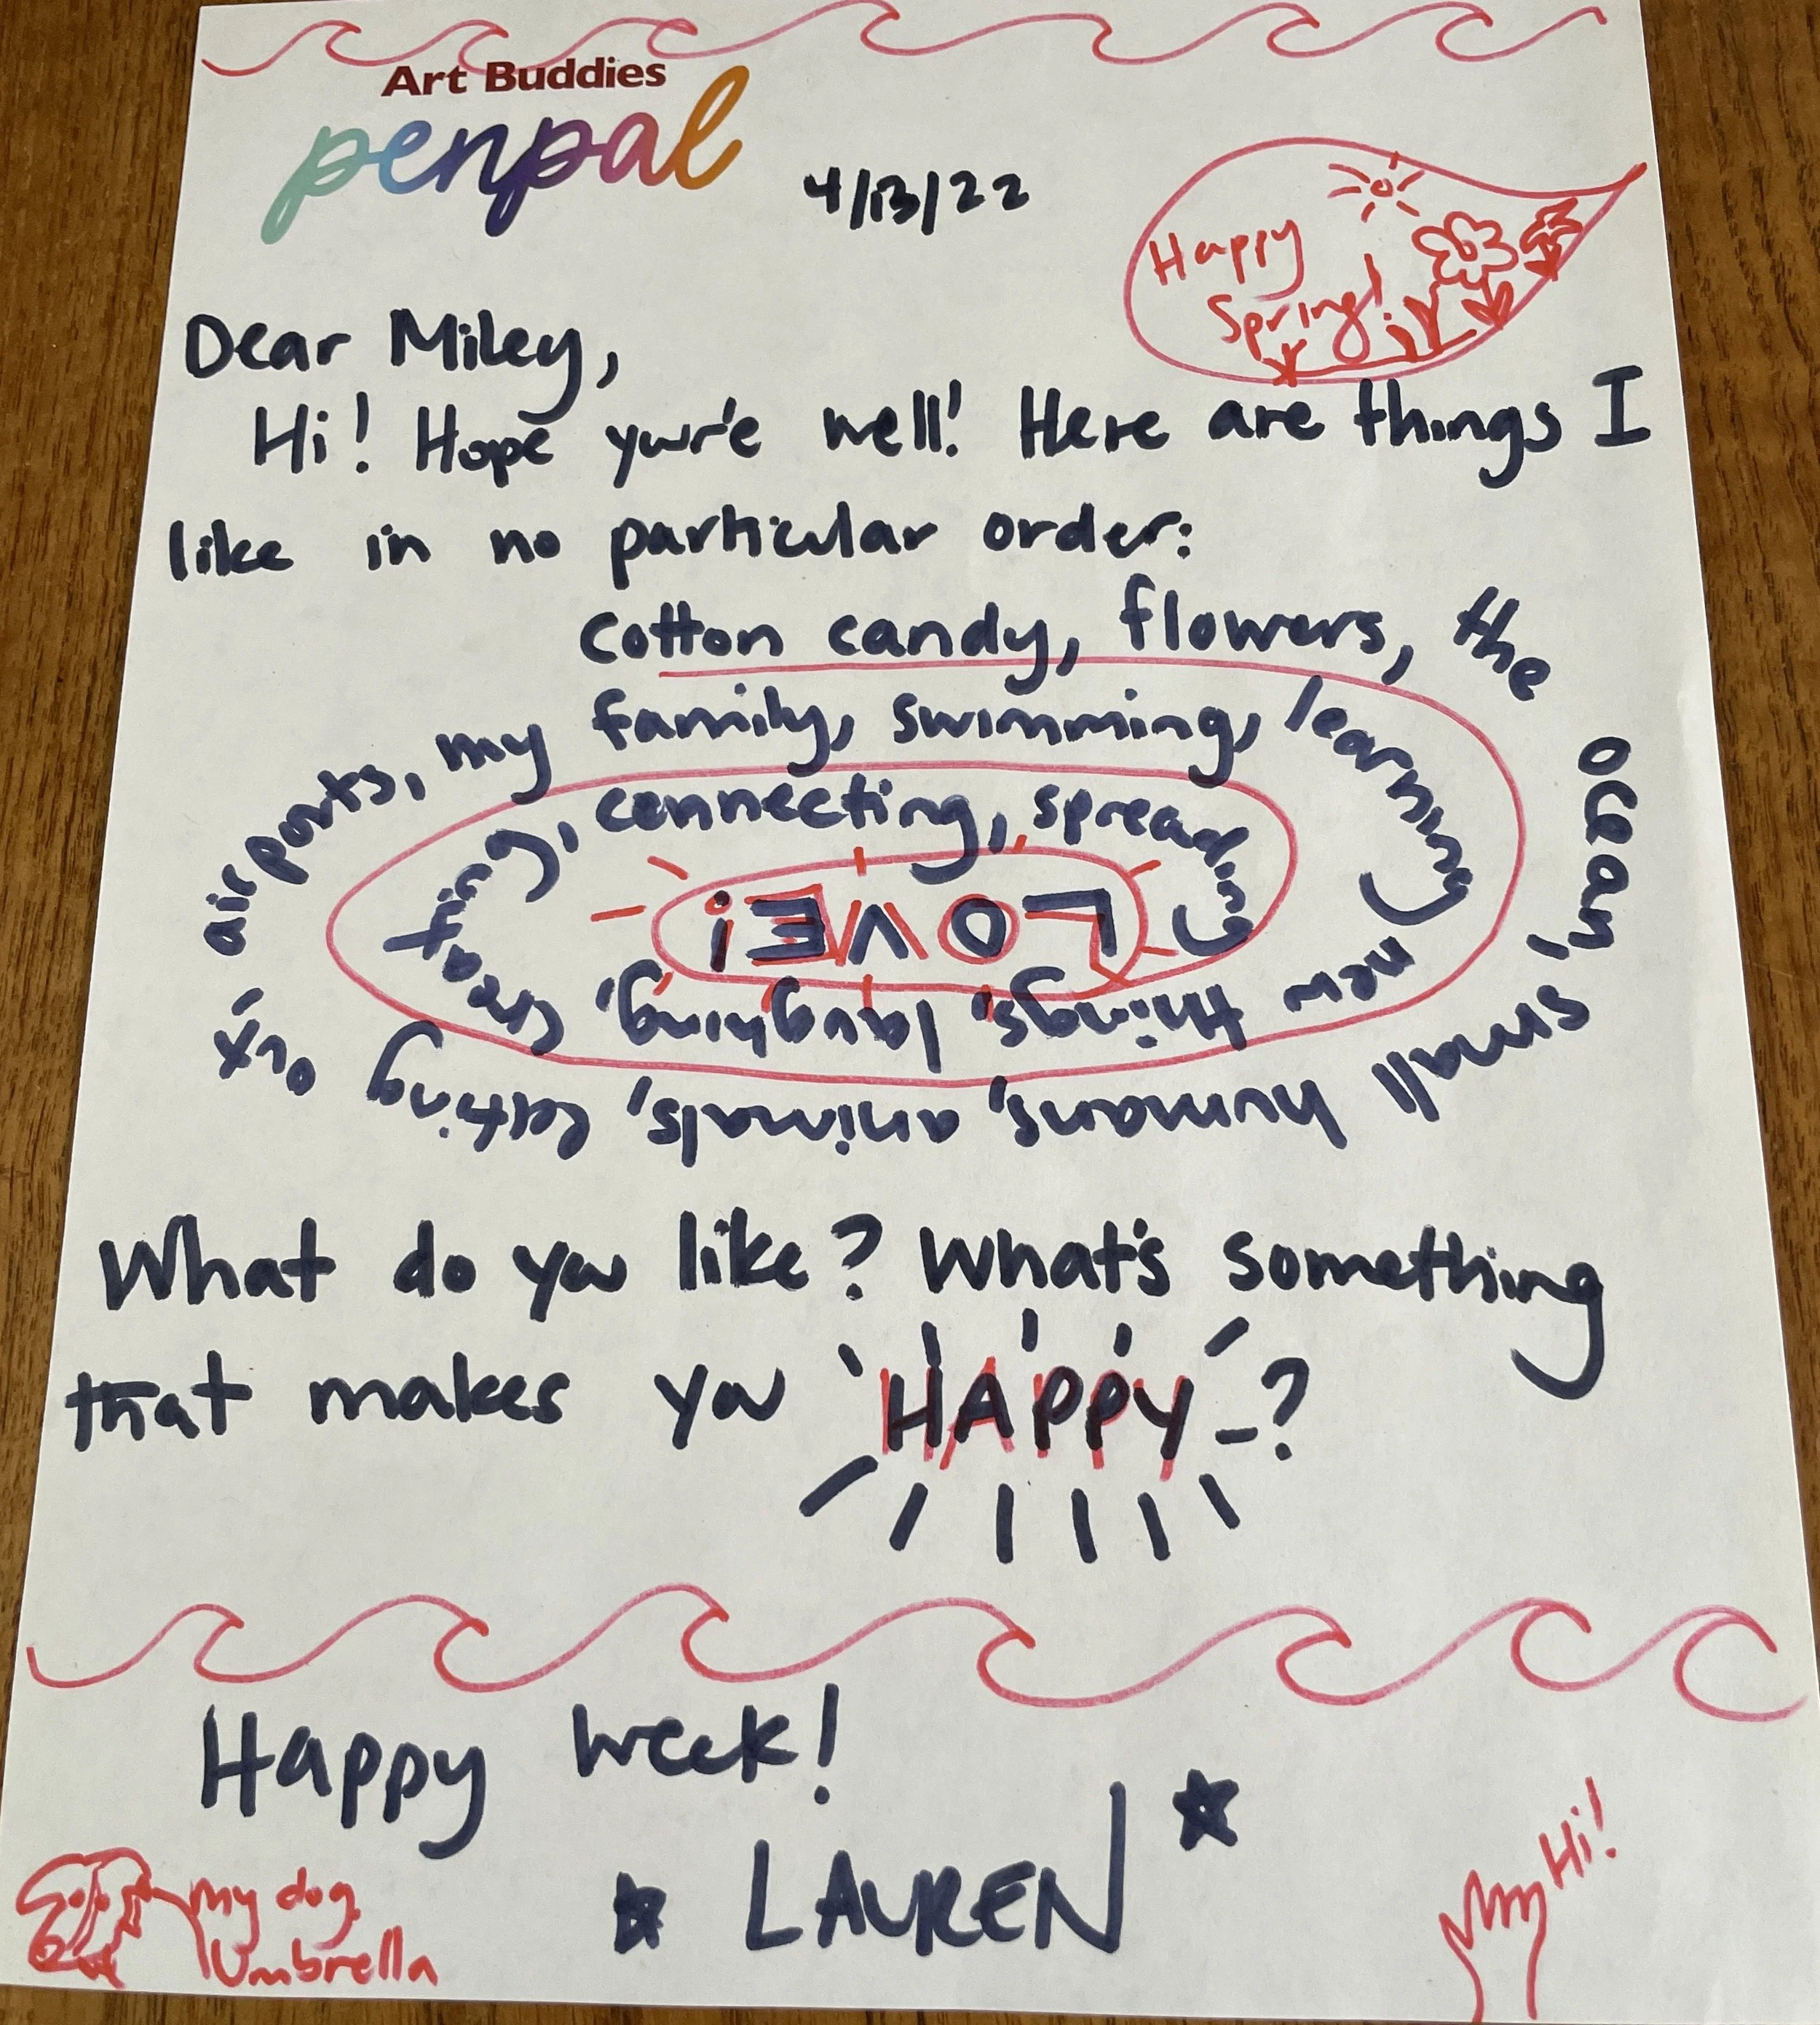 Art Buddies
penpal
4/13/22
Happy
Spring!
Dear Miley,
Hi! Hope you're well! Here are things I
like in no particular order:
cotton candy, flowers, the
ocean,
small humans, animals, eating out,
airports, my family, swimming, learning
new things, laughing, creating, connecting, spreading
LOVE!
What do you like? What's something
that makes you HAPPY?
Happy week!
LAUREN
my dog
Umbrella
Hi!